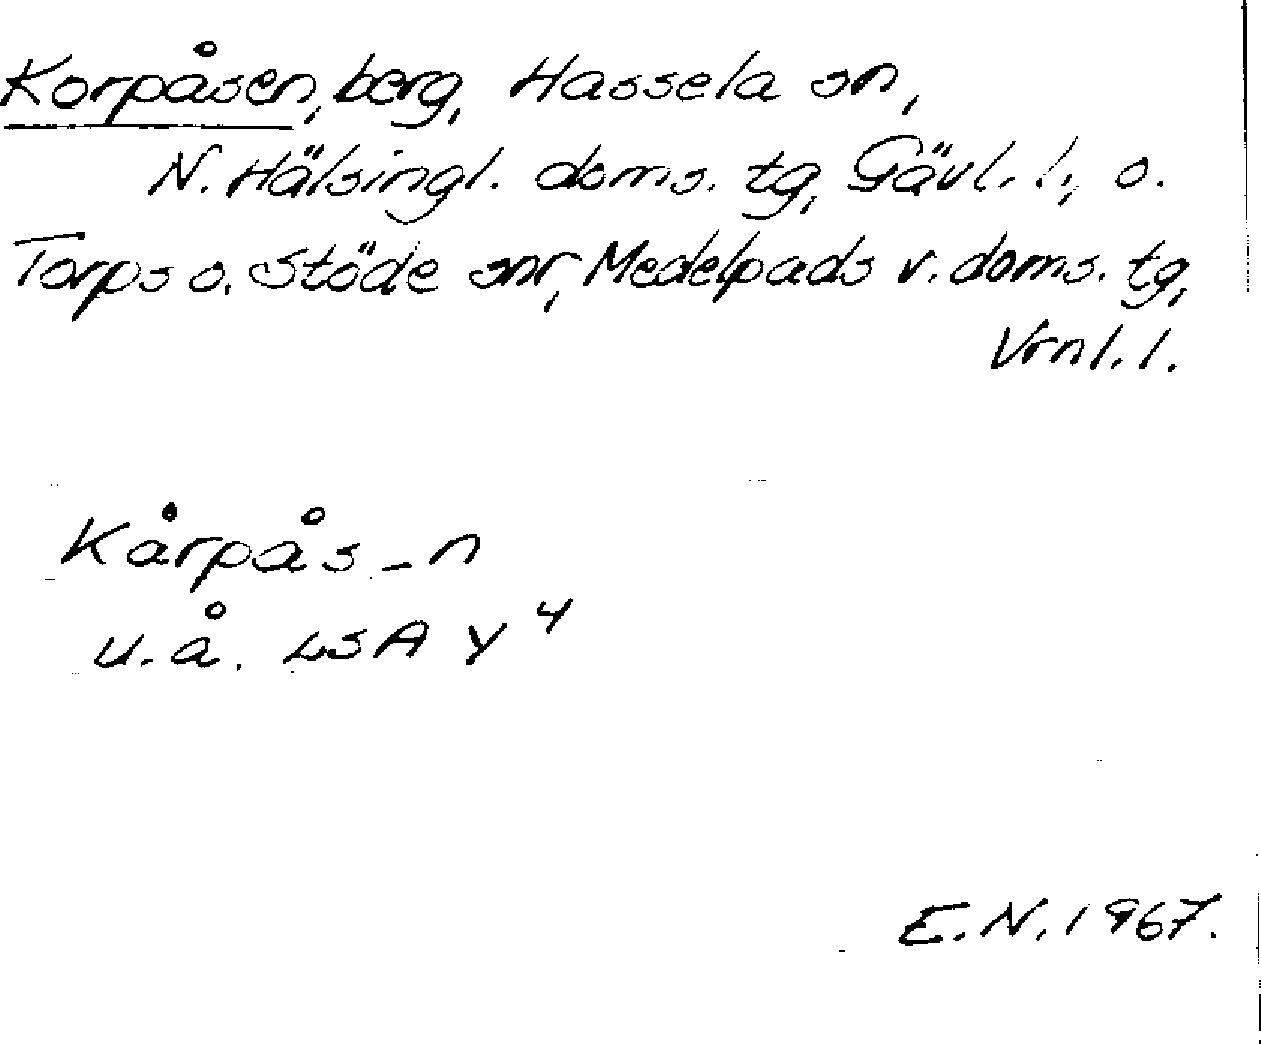 Korpåsen, berg, Hassela sn,
N. Hälsingl. doms. tg, Gävl. l., o.
Torps o. Stöde snr, Medelpads v. doms. tg,
Vrnl. l.
Kårpås_n
u.å. LSA Y4
E.N. 1967.